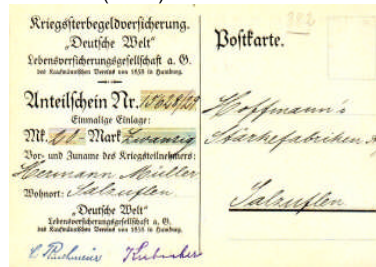 Kriegssterbegeldversicherung.
„Deutsche Welt“
Lebensversicherungsgesellschaft a. G.
des Kaufmännischen Vereins von 1858 in Hamburg.
Anteilschein Nr. 15628/29
Einmalige Einlage:
Mk. 20.- Mark Zwanzig
Vor- und Zuname des Kriegsteilnehmers:
Hermann Müller
Wohnort: Salzuflen.
„Deutsche Welt“
Lebensversicherungsgesellschaft a. G.
des Kaufmännischen Vereins von 1858 in Hamburg.
Postkarte.
Hoffmann's
Stärkefabriken
Salzuflen